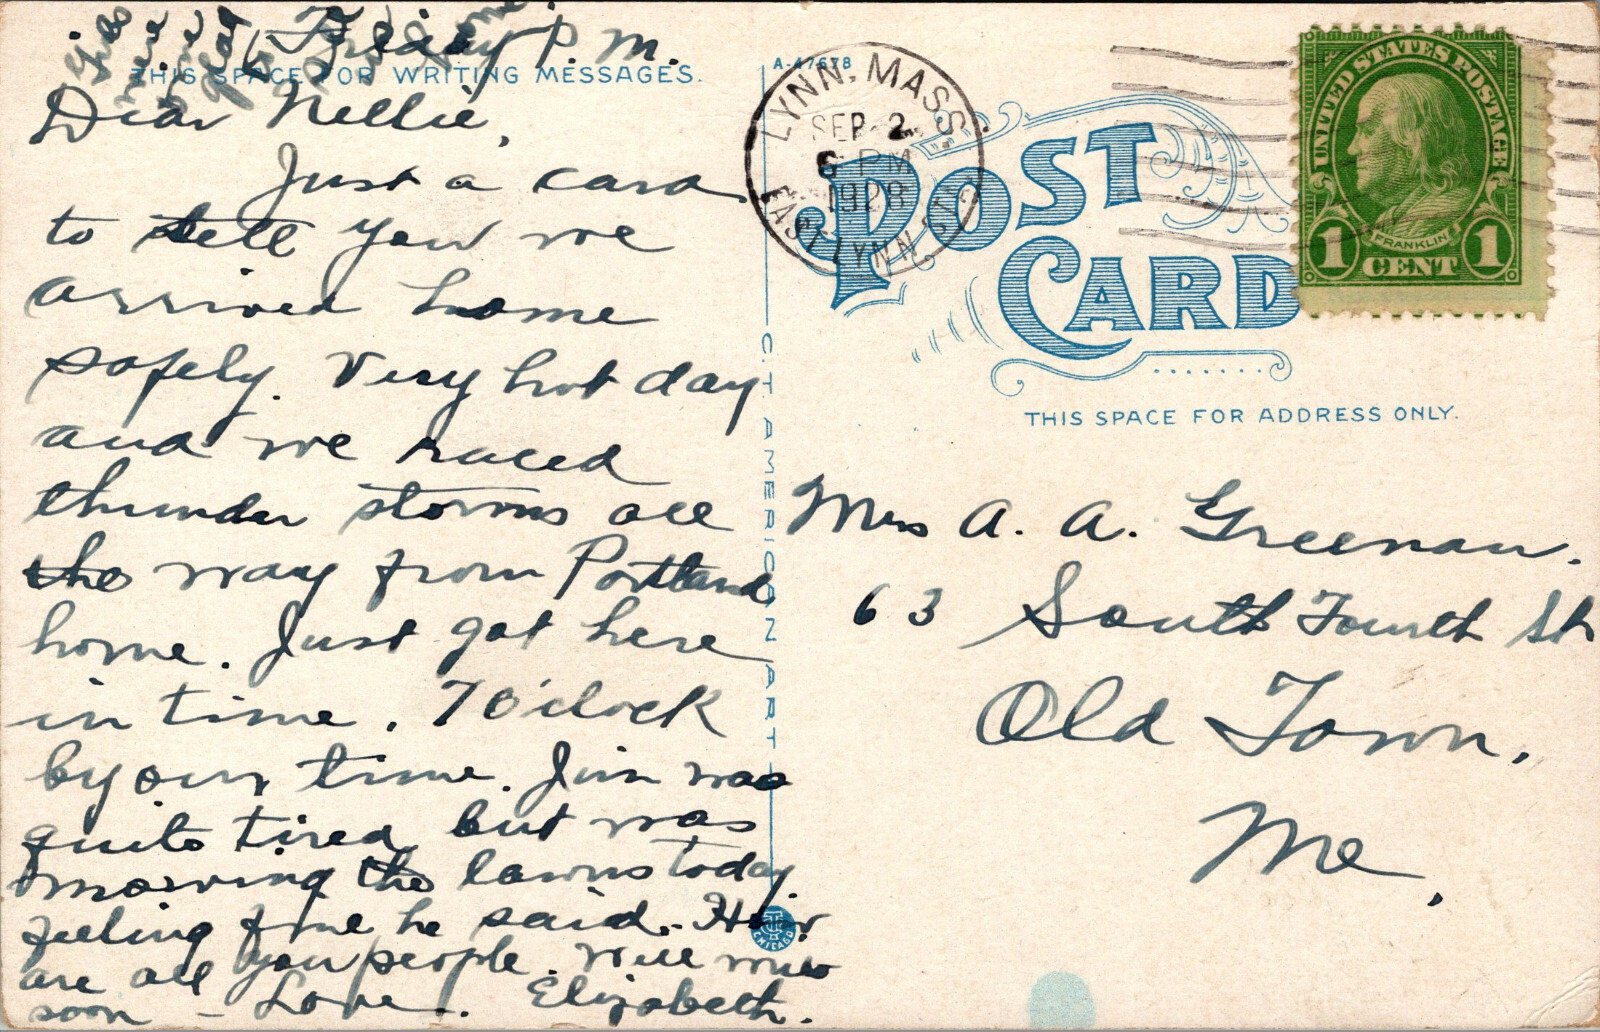 Friday P.M.
THIS SPACE FOR WRITING MESSAGES.
Dear Nellie,
Just a card
to tell you we
arrived home
safely. Very hot day
and we raced
thunder storms all
the way from Portland
home. Just got here
in time. 7 O'clock
by our time. Jim was
quite tired but was
mowing the lawns today.
feeling fine he said. How
are all you people. Will write
soon - Love. Elizabeth.
Gibbs
were
glad
home
A-47678
C. T. AMERICAN ART
CHICAGO
LYNN, MASS.
SEP 2
6 PM
1928
EAST LYNN STA.
POST
CARD
UNITED STATES POSTAGE
FRANKLIN
1 CENT 1
THIS SPACE FOR ADDRESS ONLY.
Mrs A. A. Greenan.
63 South Fourth St
Old Town,
Me,